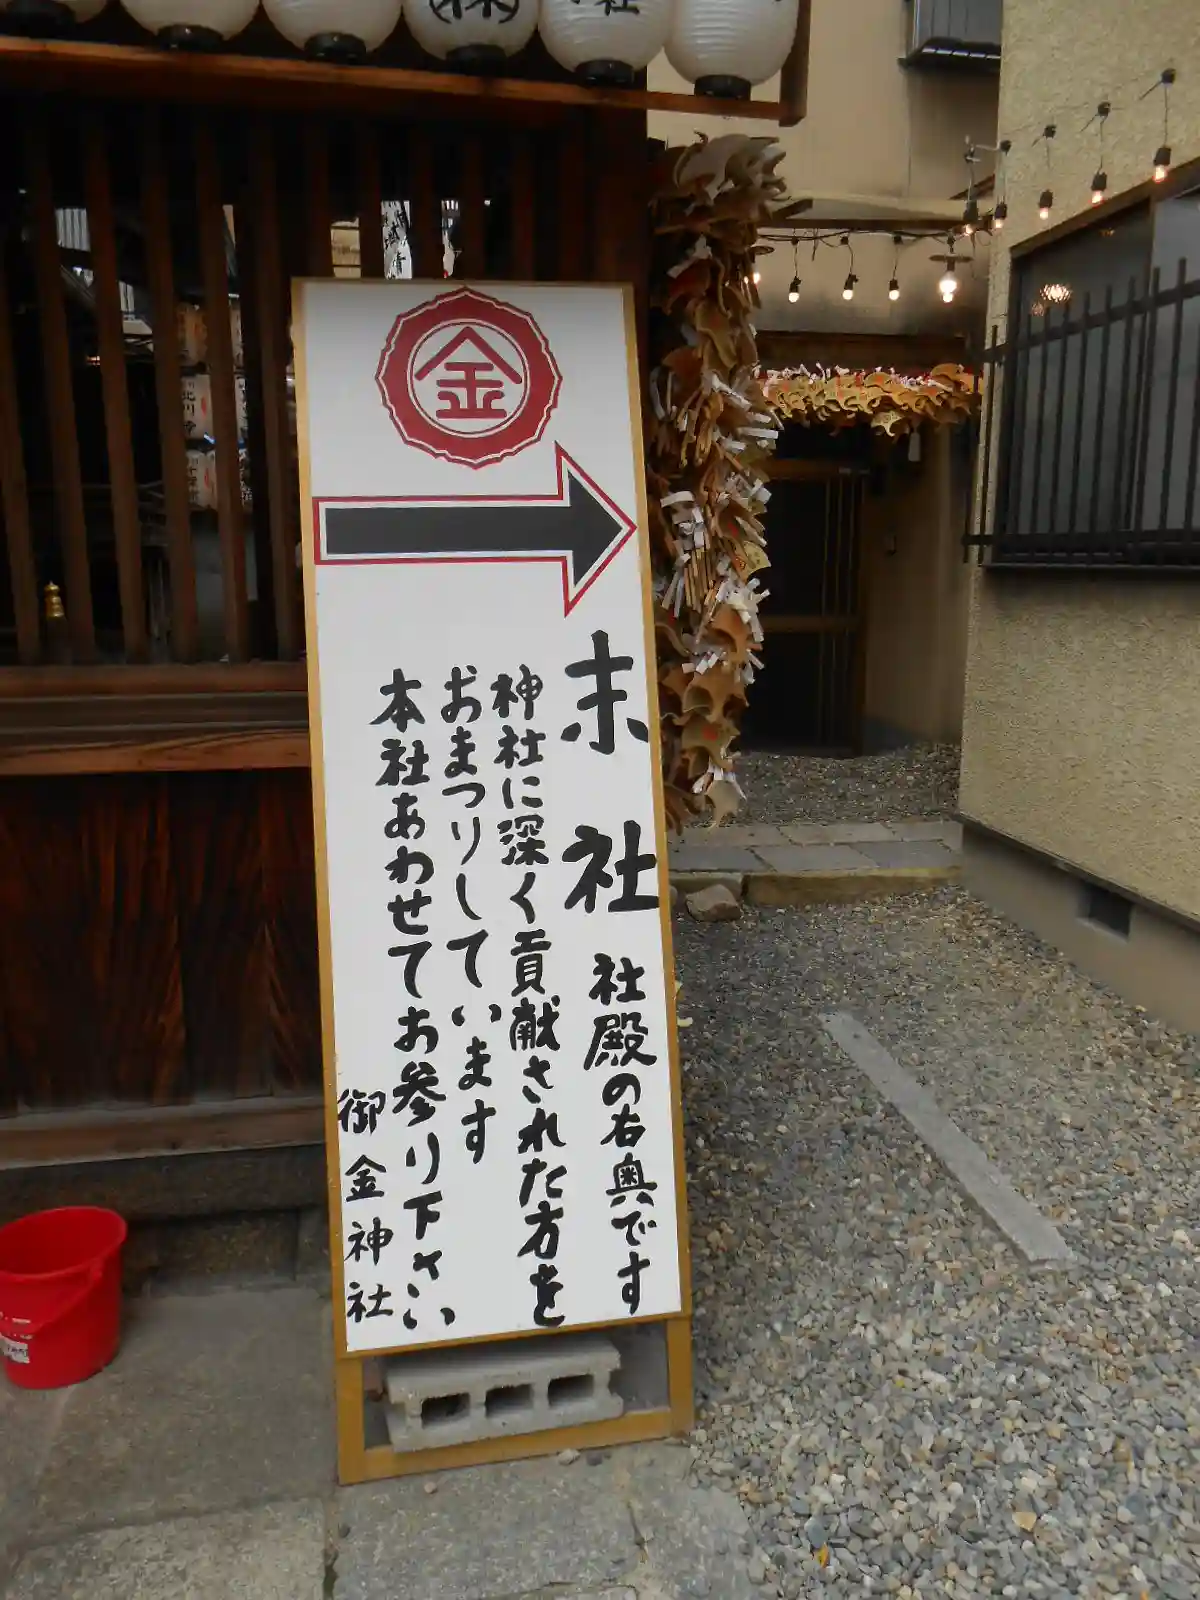 ㈱
社
金
末社 社殿の右奥です
神社に深く貢献された方を
おまつりしています
本社あわせてお参り下さい
御金神社